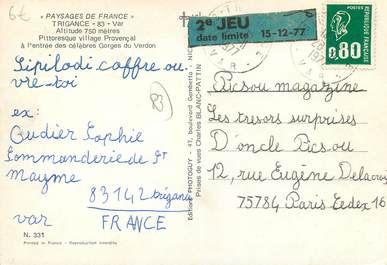 6€
« PAYSAGES DE FRANCE »
TRIGANCE - 83 - Var
Altitude 750 mètres
Pittoresque village Provençal
à l'entrée des célèbres Gorges du Verdon
2e JEU
date limite 15-12-77
POSTES
0,80
FRANCE
Sipilodi coffre ou
vre-toi
83
ex:
Audier Sophie
Commanderie de St
Mayme
83142 Trigance
var
FRANCE
N. 331
Printed in France - Reproduction interdite
Edition PHOTOGUY - 47, boulevard Gambetta - NICE
Prises de vues Charles BLANC-PATTIN
Picsou magazine
Les tresors surprises
D'oncle Picsou
12, rue Eugène Delacroix
75784 Paris Cedex 16